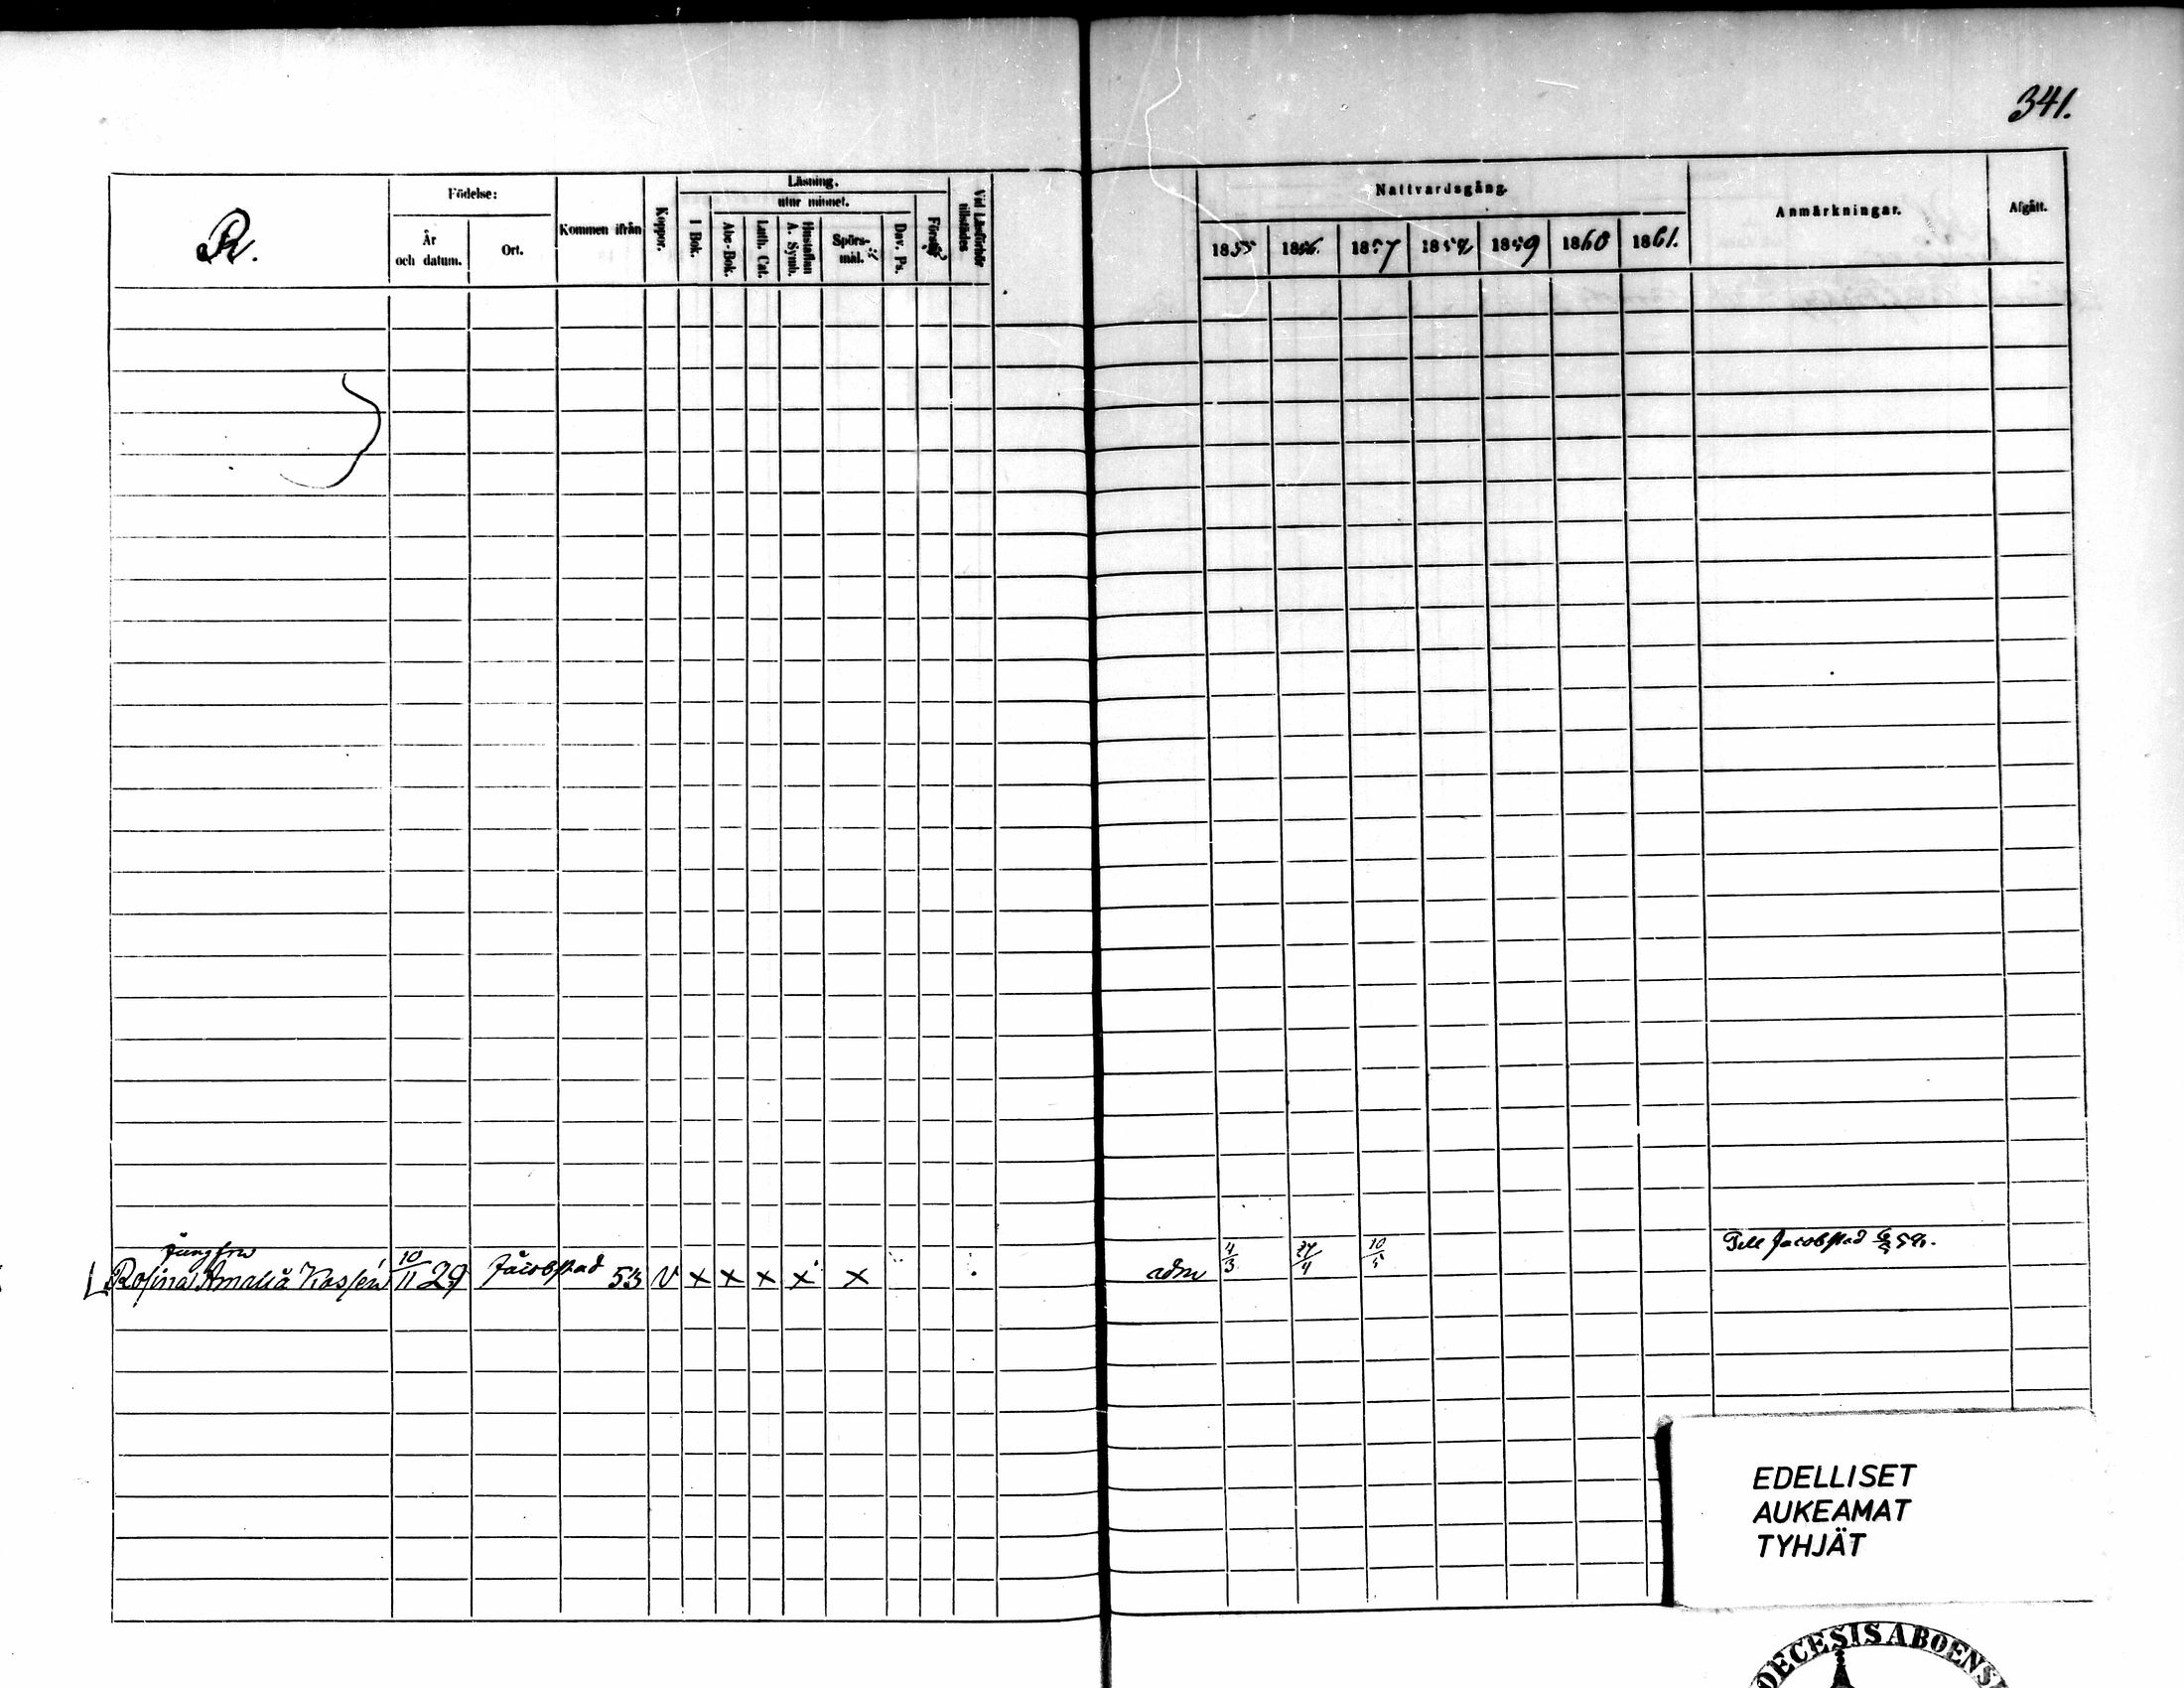 341.
R.
Födelse:
År
och datum.
Ort.
Kommen ifrån
Koppor.
Läsning.
utur minnet.
I Bok.
Abc-Bok.
Luth. Cat.
Hustaflan
A. Symb.
Spörs-
mål.
Dav. Ps.
Förstår
Vid Läsförhör
tillstädes
Nattvardsgång.
1855 1856. 1857 1858 1859 1860 1861.
Anmärkningar.
Afgått.
Jungfru
Rosina Amalia 10/11 29 Jacobstad 53 v x x x x x adm 4/3 27/4 10/5 Till Jacobstad
EDELLISET
AUKEAMAT
TYHJÄT